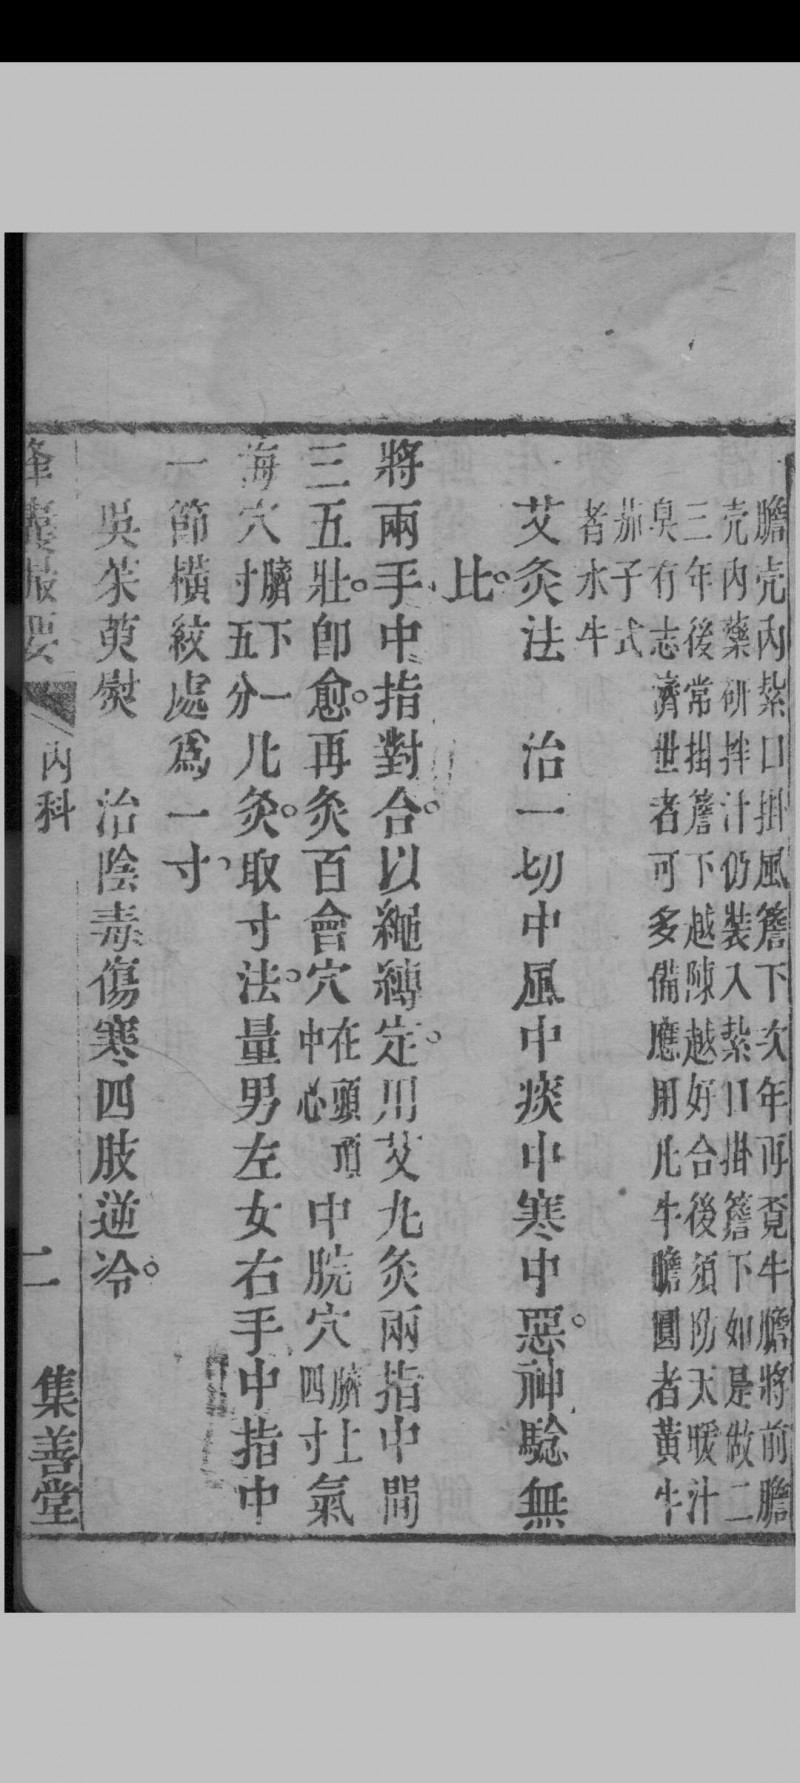 膽壳內紮口掛風簷下次年再覔牛膽將前膽
壳內藥研拌汁仍裝入紮口掛簷下如是做二
三年後常掛簷下越陳越好合後須防天暖汁
臭有志濟世者可多備應用凡牛膽圓者黃牛
茄子式
者水牛
艾灸法　治一切中風中痰中寒中惡。神驗無
比。
將兩手中指對合。以繩縛定。用艾丸灸兩指中間
三五壯。卽愈。再灸百會穴在頭頂中心中脘穴臍上四寸氣
海穴臍下一寸五分凡灸。取寸法。量男左女右手中指中
一節橫紋處爲一寸、
吳茱萸熨　治陰毒傷寒四肢逆冷。
內科　二　集善堂